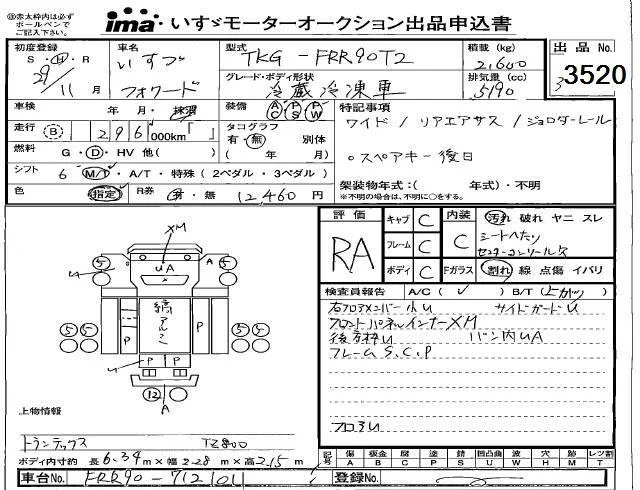 ※赤太枠内は必ず
ボールペンで
ご記入下さい。
ima・いすゞモーターオークション出品申込書
初度登録 車名 型式 積載(kg) 出品 No.
S・H・R いすゞ TKG-FRR90T2 2,600
29/11月 フォワード グレード・ボディ形状 排気量(cc) 3520
冷蔵冷凍車 5190
車検 年・月・抹消 装備 AC PS PW 特記事項
走行 B 296,000km「 」 タコグラフ ワイド/リアエアサス/ジョロダーレール
有・無 別体
燃料 G・D・HV 他( ) ( 年 月) ○スペアキー後日
シフト 6 M/T・A/T・特殊(2ペダル・3ペダル)
色 指定 R券 有・無 12,460円 架装物年式:( 年式)・不明
※不明の場合は、不明に○をする。
評価 キャブ C 内装 汚れ 破れ ヤニ スレ
RA フレーム C C シートへたり
センターコンソール欠
ボディ C Fガラス 割れ 線 点傷 イバリ
検査員報告 A/C( ✓ ) B/T(上がり)
右フロアメンバー小U サイドガードU
フロントパネルインナーXM
後方枠U バン内UA
フレームS.C.P
フロアU
XM
5 A 5
U UA
5 5 P 縞アルミ P 5 5
P P
U
12
A
上物情報
トランテックス TZ800
ボディ内寸約 長6.34m×幅2.28m×高2.15m
記号 傷 板金 腐 塗 錆 凹凸曲 波 穴 跡 レツ割
A B C P S U W H M T
車台No. FRR90-712101 登録No.